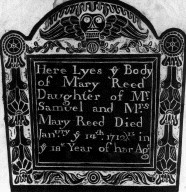 Here Lyes ẏ Body
of Mary Reed
Daughter of Mr
Samuel and Mrs
Mary Reed Died
Janry ẏ 14th in
ẏ 18th Year of har Age